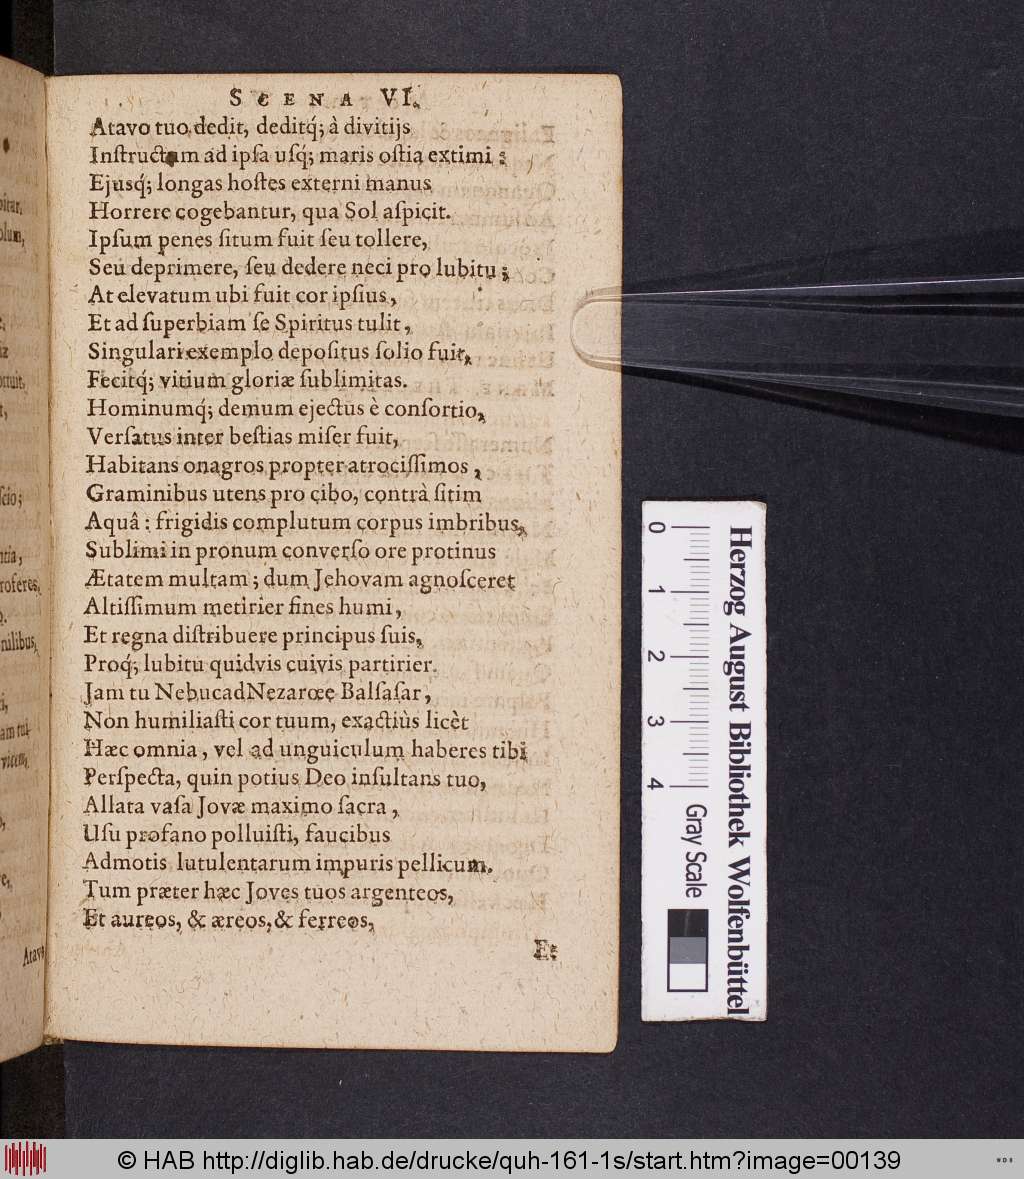 SCENA VI.
Atavo tuo dedit, deditq́; à divitijs
Inſtructum ad ipſa uſq́; maris oſtia extimi :
Ejusq́; longas hoſtes externi manus
Horrere cogebantur, qua Sol aſpicit.
Ipſum penes ſitum fuit ſeu tollere,
Seu deprimere, ſeu dedere neci pro lubitu ;
At elevatum ubi fuit cor ipſius,
Et ad ſuperbiam ſe Spiritus tulit,
Singulari exemplo depoſitus ſolio fuit,
Fecitq́; vitium gloriæ ſublimitas.
Hominumq́; demum ejectus è conſortio,
Verſatus inter beſtias miſer fuit,
Habitans onagros propter atrociſſimos,
Graminibus utens pro cibo, contrà ſitim
Aquâ : frigidis complutum corpus imbribus,
Sublimi in pronum converſo ore protinus
Ætatem multam ; dum Jehovam agnoſceret
Altiſſimum metirier fines humi,
Et regna diſtribuere principus ſuis,
Proq́; lubitu quidvis cuivis partirier.
Jam tu NebucadNezarœe Balſaſar,
Non humiliaſti cor tuum, exactiùs licèt
Hæc omnia, vel ad unguiculum haberes tibi
Perſpecta, quin potius Deo inſultans tuo,
Allata vaſa Jovæ maximo ſacra,
Uſu profano polluiſti, faucibus
Admotis lutulentarum impuris pellicum.
Tum præter hæc Joves tuos argenteos,
Et aureos, & æreos, & ferreos,
Et
pitar.
olum,
ortuit,
ſcio;
ntia,
roferes,
nilibus,
am tui
Atavo
0 1 2 3 4
Gray Scale
Herzog August Bibliothek Wolfenbüttel
© HAB http://diglib.hab.de/drucke/quh-161-1s/start.htm?image=00139